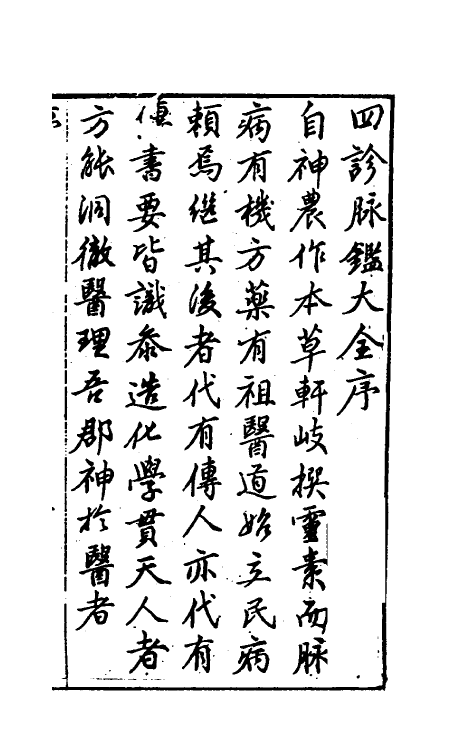 四診脉鑑大全序
自神農作本草軒岐撰靈素而脉
病有機方藥有祖醫道始立民病
賴焉継其後者代有傳人亦代有
傳書要皆識叅造化學貫天人者
方能洞徹醫理吾郡神於醫者